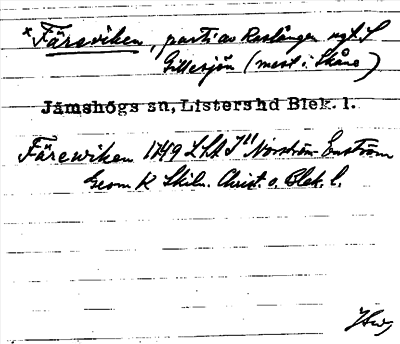 * Färsviken, parti av Raslången ngt S
Gillesjön (mest i Skåne)
Jämshögs sn, Listers hd Blek. l.
Färewiken 1749 LSA Norström-Enström
Geom K Skiln. Christ. o. Blek. l.